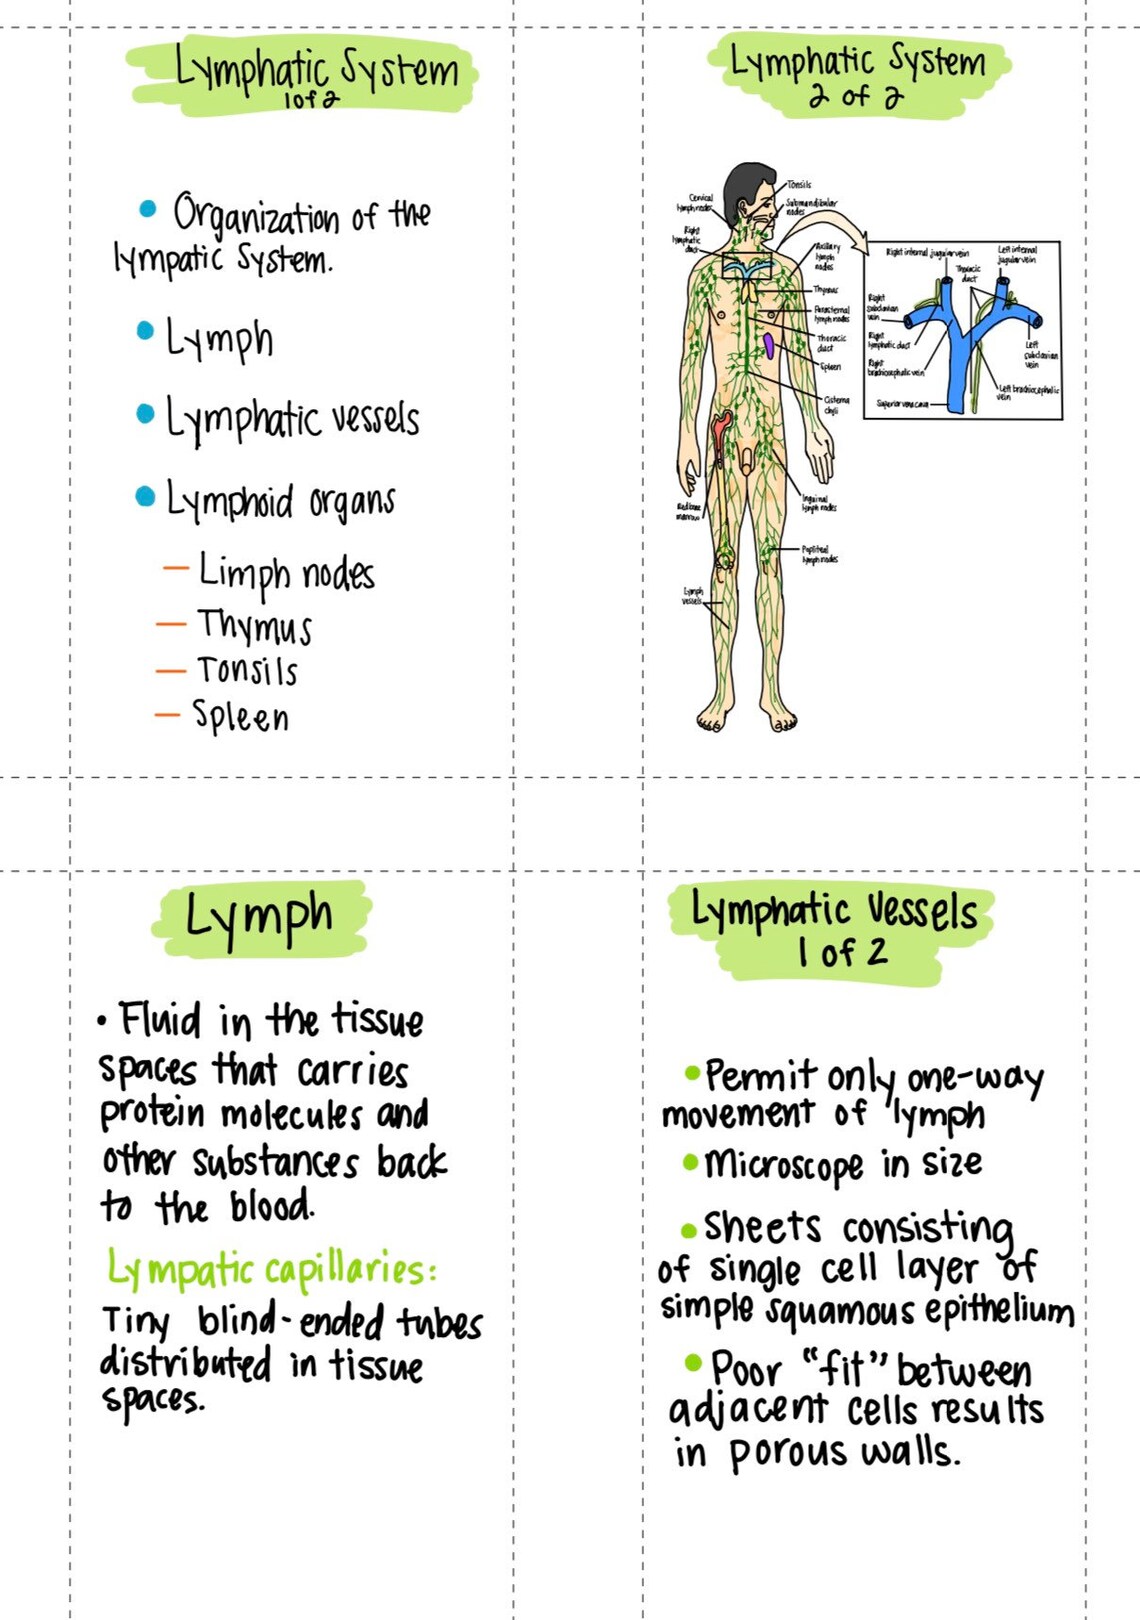 Lymphatic System
1 of 2
• Organization of the
lympatic System.
• Lymph
• Lymphatic vessels
• Lymphoid organs
— Limph nodes
— Thymus
— Tonsils
— Spleen
Lymphatic System
2 of 2
Tonsils
Cervical
lymph nodes
Submandibular
nodes
Right
lymphatic
duct
Axillary
lymph
nodes
Thymus
Parasternal
lymph nodes
Thoracic
duct
Spleen
Cisterna
chyli
Inguinal
lymph nodes
Red bone
marrow
Popliteal
lymph nodes
Lymph
vessels
Right internal jugular vein
Left internal
jugular vein
Thoracic
duct
Right
subclavian
vein
Right
lymphatic duct
Right
brachiocephalic vein
Left
subclavian
vein
Left brachiocephalic
vein
Superior vena cava
Lymph
• Fluid in the tissue
spaces that carries
protein molecules and
other substances back
to the blood.
Lympatic capillaries:
Tiny blind-ended tubes
distributed in tissue
spaces.
Lymphatic Vessels
1 of 2
• Permit only one-way
movement of lymph
• Microscope in size
• Sheets consisting
of single cell layer of
simple squamous epithelium
• Poor “fit” between
adjacent cells results
in porous walls.